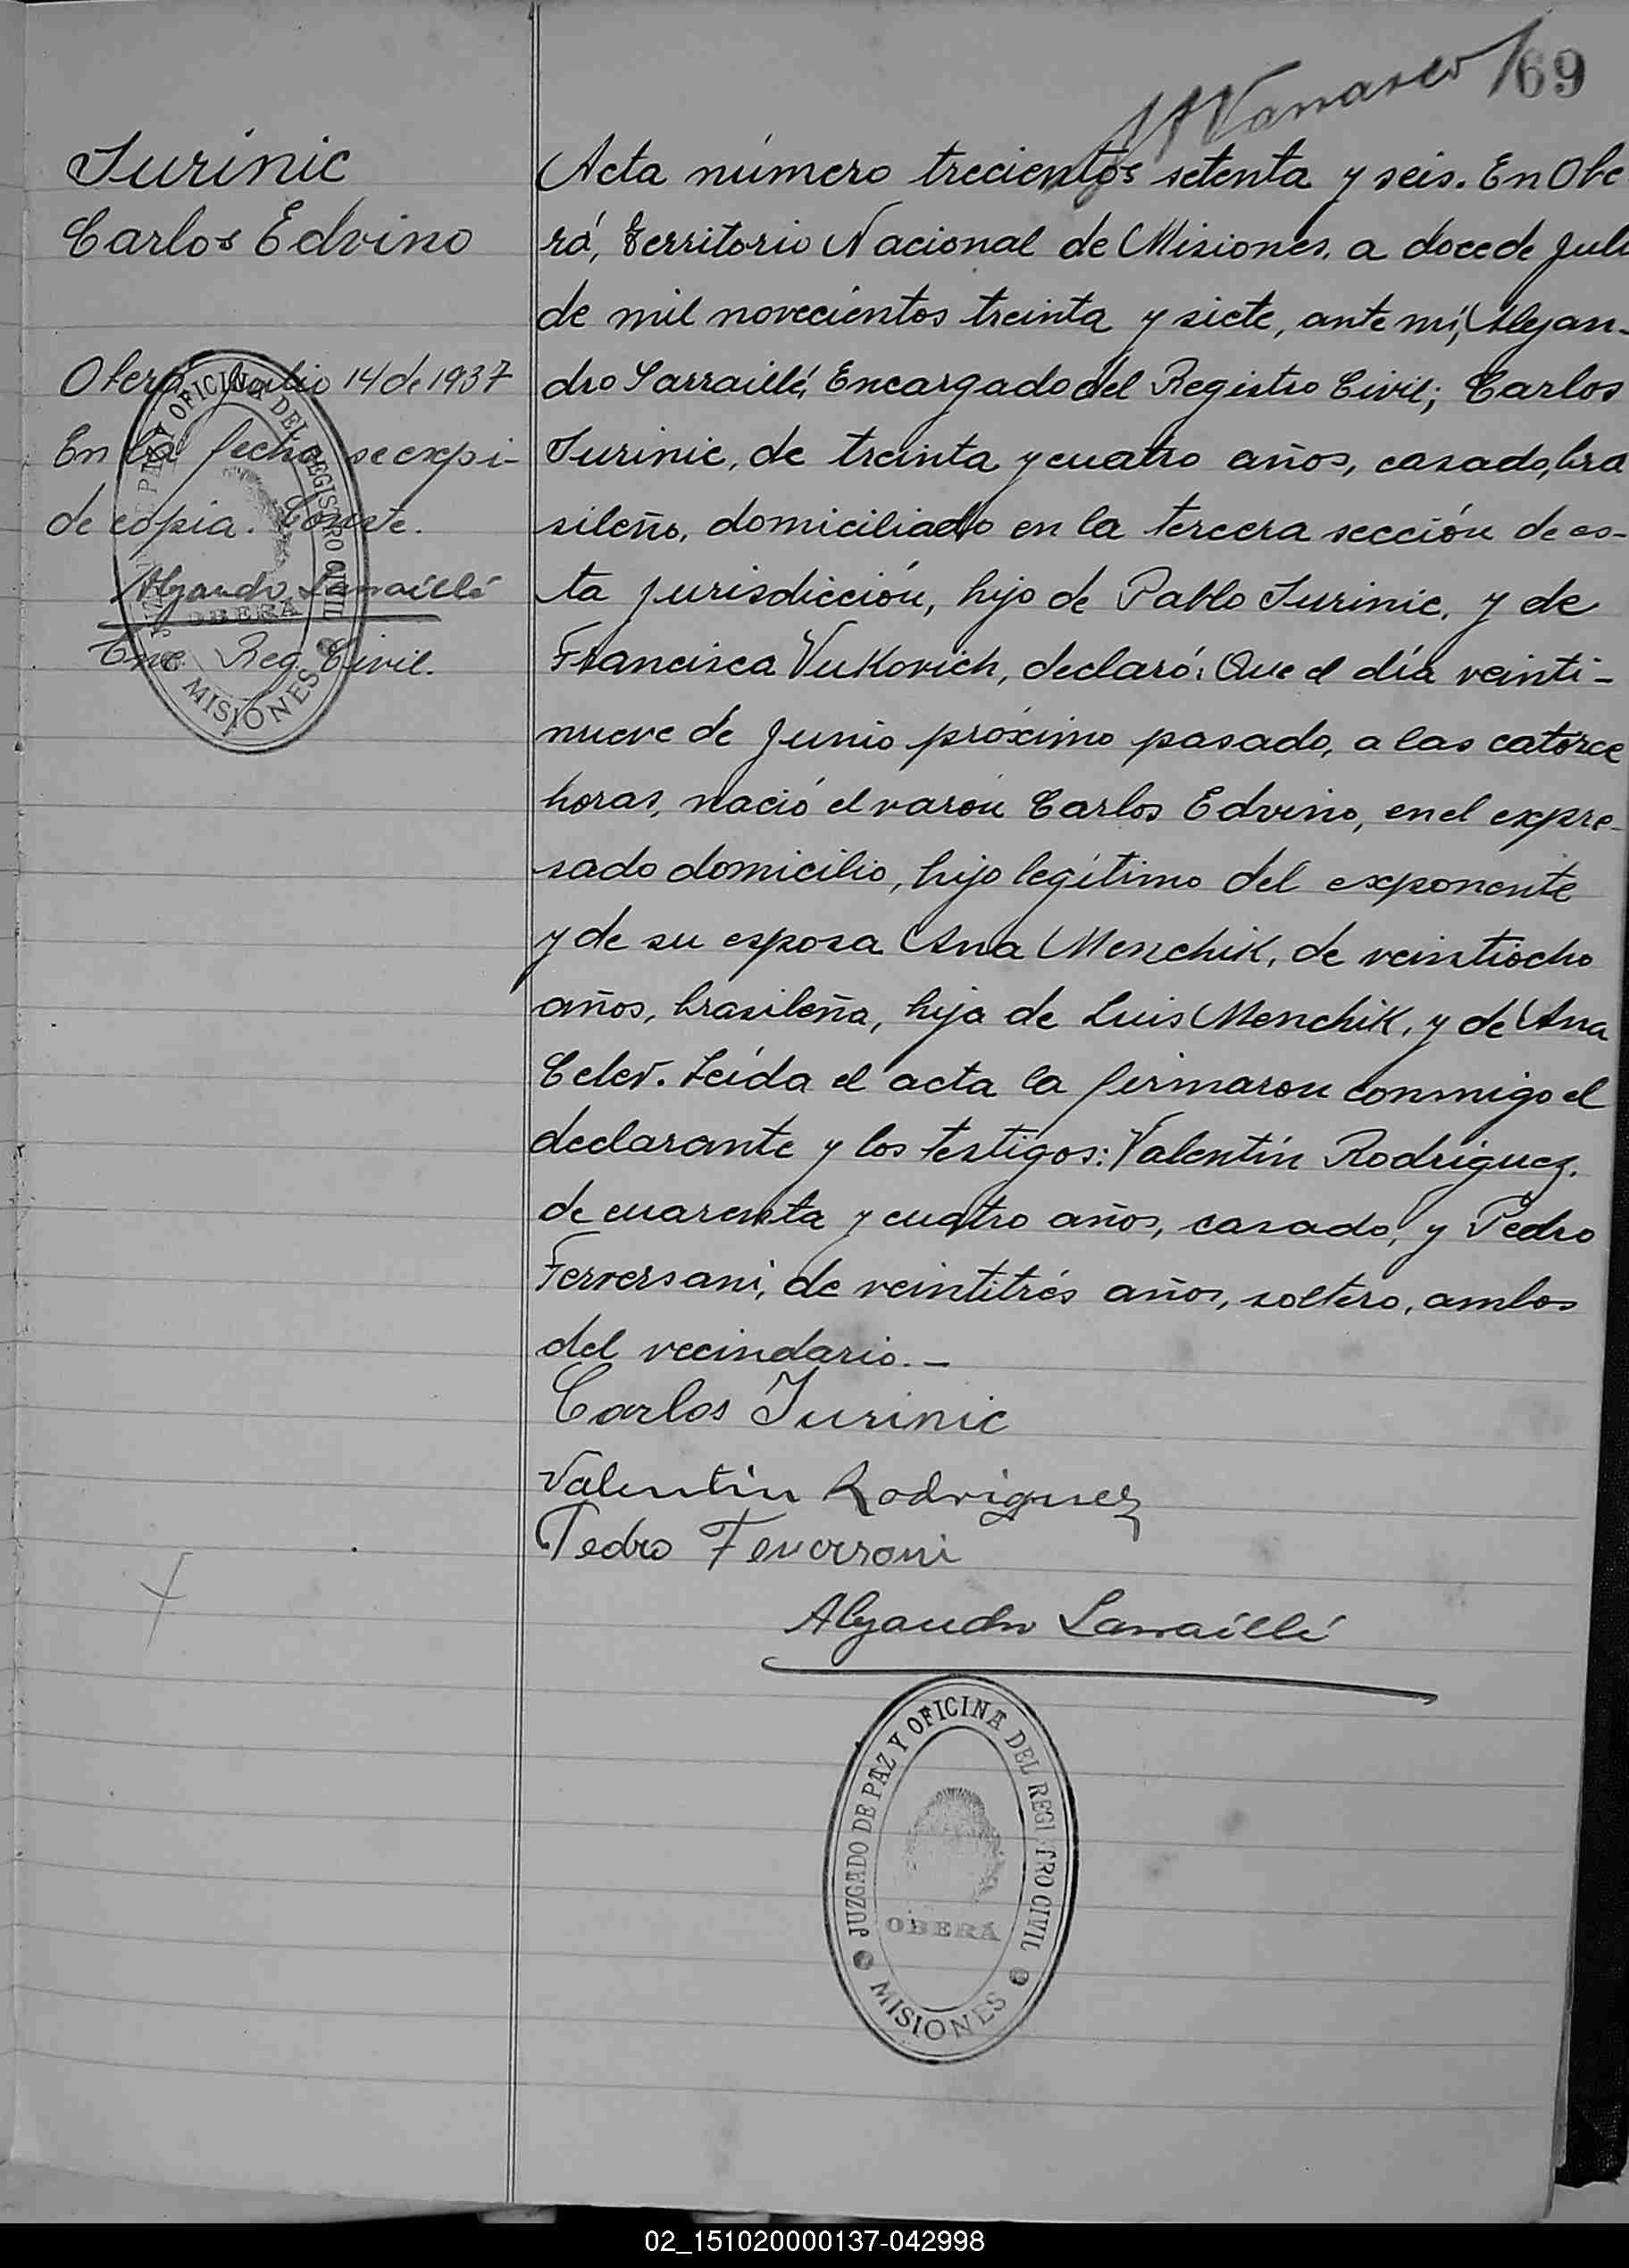 169
Jurinic
Carlos Edvino
Oberá, Julio 14 de 1937
En la fecha se expi-
de copia. Conste.
Alejandro Sarraillé
Enc Reg. Civil.
Acta número trecientos setenta y seis. En Obe
rá, territorio Nacional de Misiones, a doce de Juli
de mil novecientos treinta y siete, ante mí, Alejan-
dro Sarraillé, Encargado del Registro Civil; Carlos
Jurinic, de treinta y cuatro años, casado, bra
sileño, domiciliado en la tercera sección de es-
ta jurisdicción, hijo de Pablo Jurinic, y de
Francisca Vukovich, declaró: Que el día veinti-
nueve de Junio próximo pasado, a las catorce
horas, nació el varón Carlos Edvino, en el expre-
sado domicilio, hijo legítimo del exponente
y de su esposa Ana Menchik, de veintiocho
años, brasileña, hija de Luis Menchik, y de Ana
Celev. Leída el acta la firmaron conmigo el
declarante y los testigos: Valentín Rodriguez,
de cuarenta y cuatro años, casado, y Pedro
Ferversani, de veintitrés años, soltero, ambos
del vecindario.-
Carlos Jurinic
Valentin Rodriguez
Pedro
Alejandro Sarraillé
JUZGADO DE PAZ Y OFICINA DEL REGISTRO CIVIL
OBERÁ
MISIONES
02_151020000137-042998